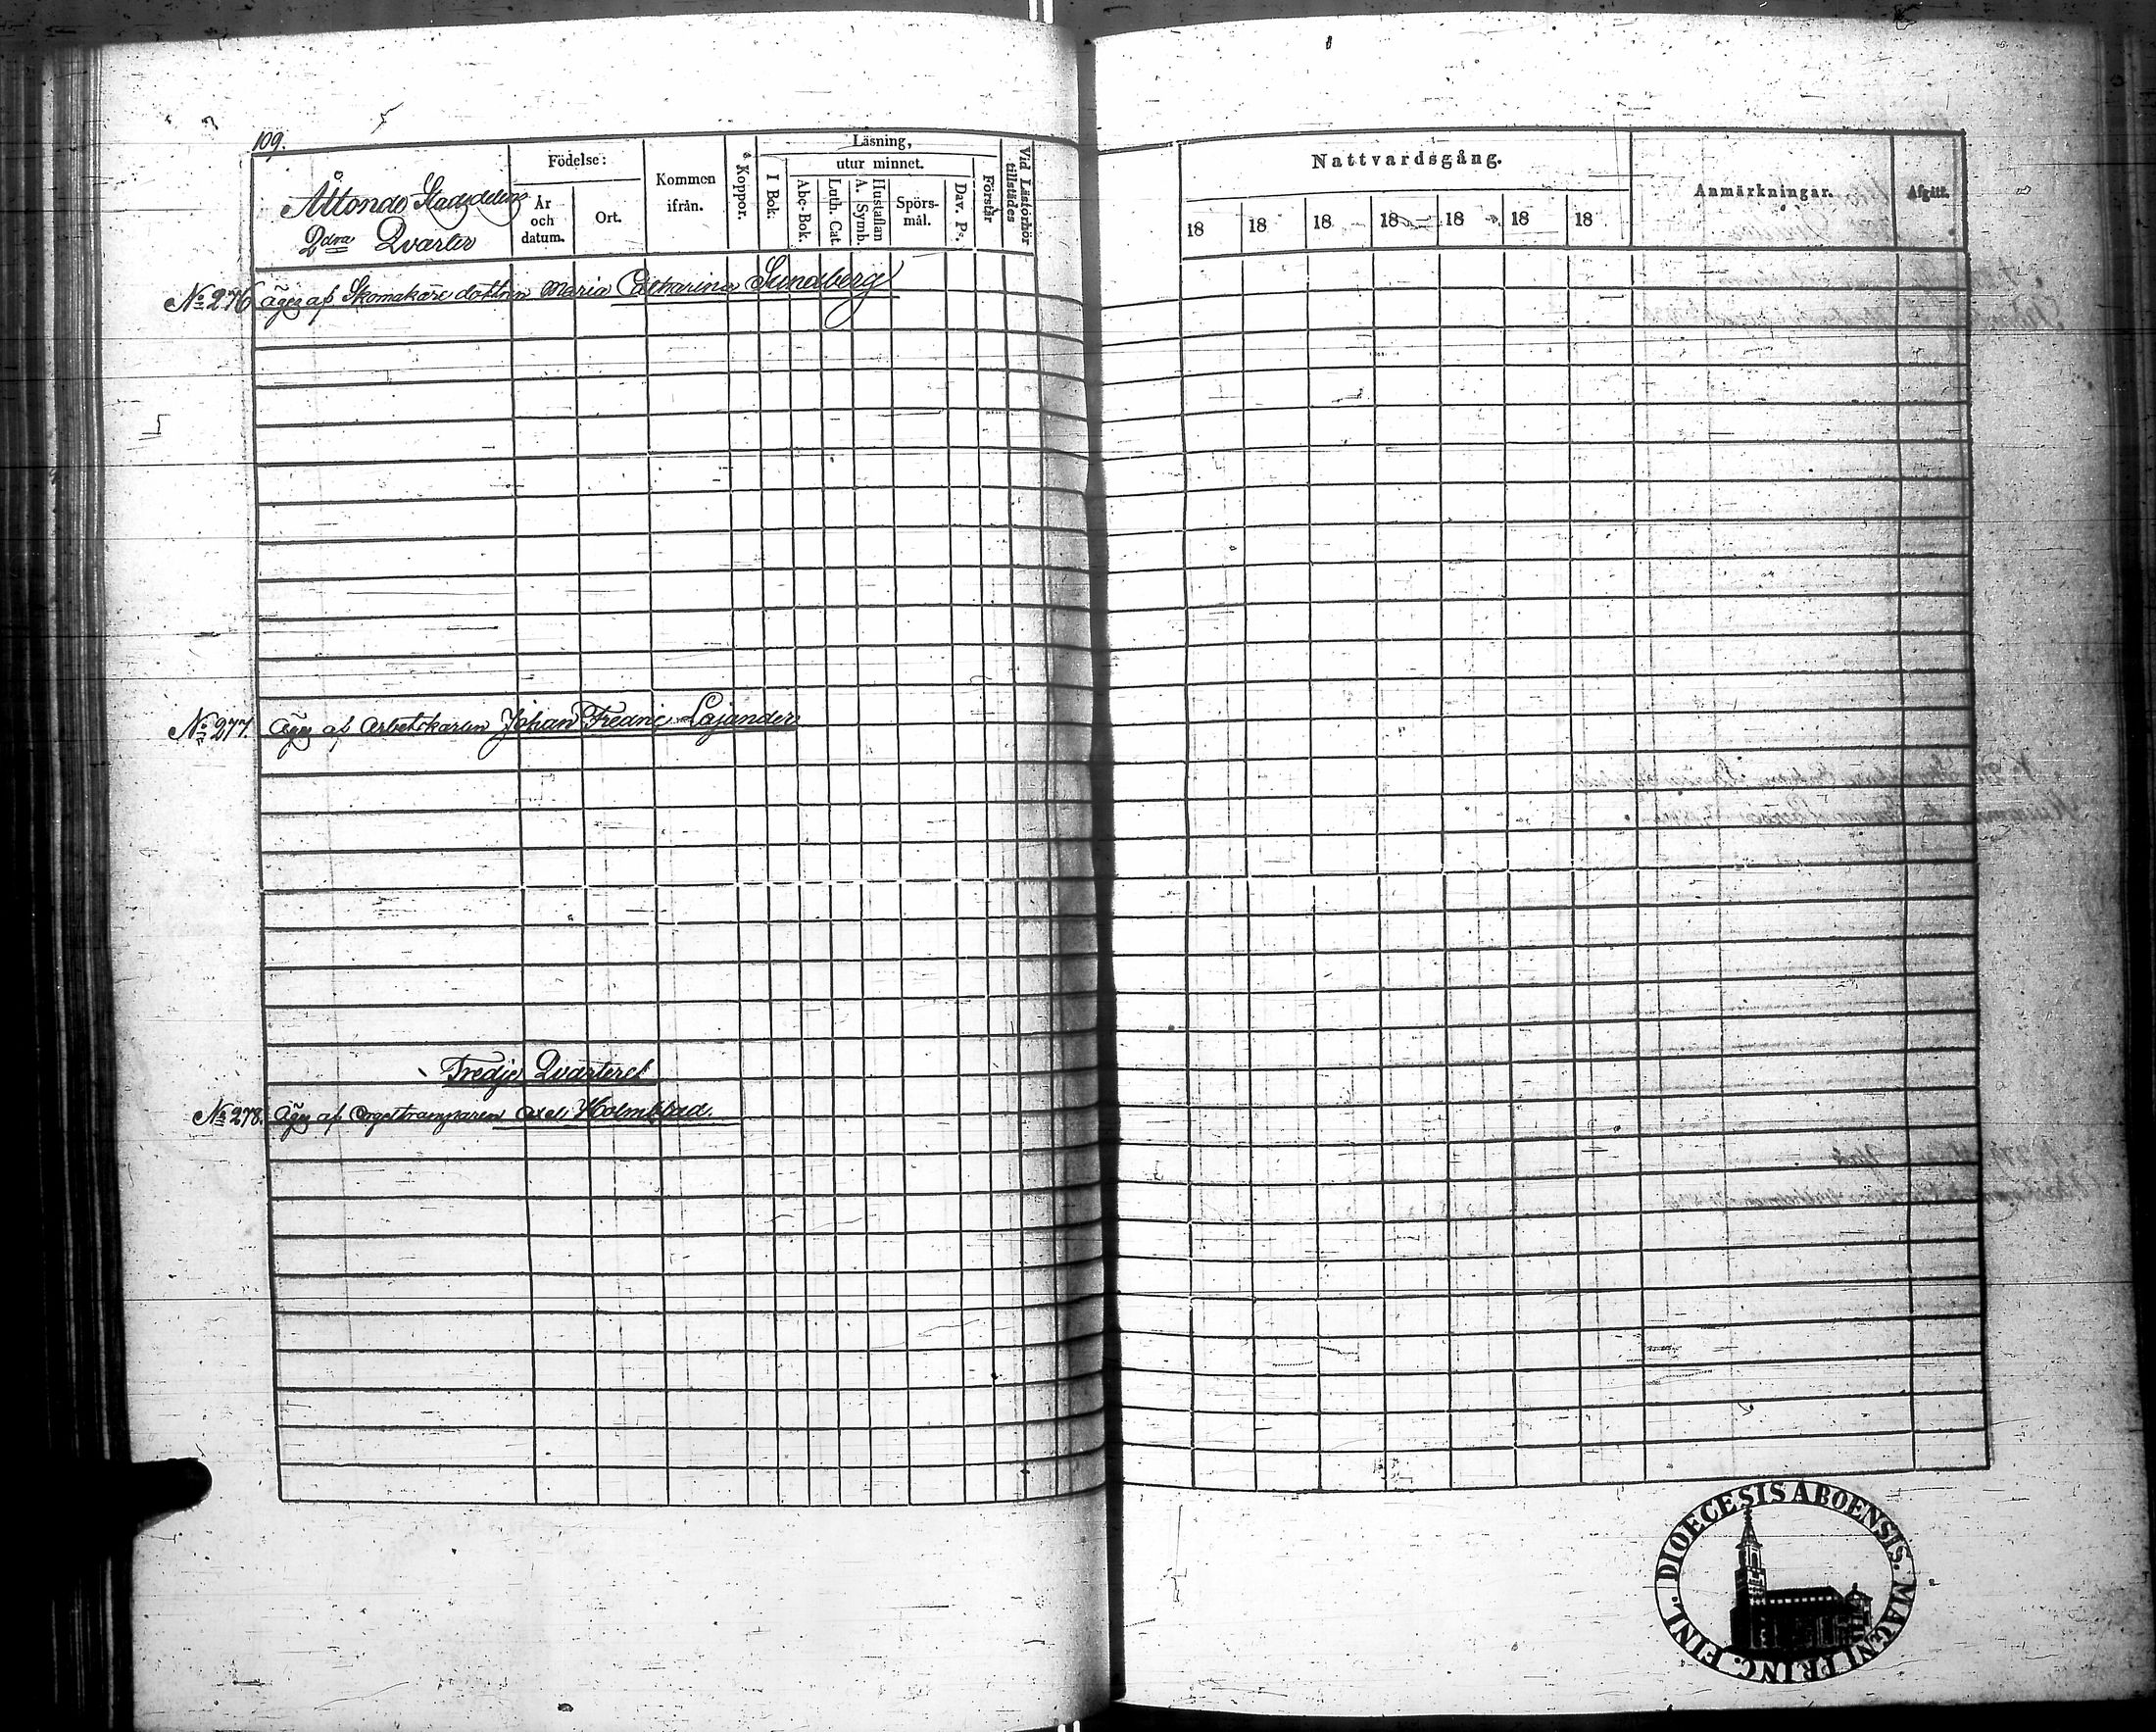 109.
Åttonde Stadsdelens
2dra Qvarter
Födelse:
År och datum.
Ort.
Kommen ifrån.
Koppor.
Läsning,
utur minnet.
I Bok.
Abc-Bok.
Luth. Cat.
Hustaflan
A. Symb.
Spörs-mål.
Dav. Ps.
Förstår
Vid Läsförhör tillstädes
Nattvardsgång.
18 18 18 18 18 18 18
Anmärkningar.
Afgått.
No 276 äges af Skomakare dottren Maria Catharina Sundberg
No 277. Äges af Arbetskarlen Johan Fredric Lojander
Tredje Qvarteret
No 278. Äges af Orgeltramparen Axel Holmblad.
DIOECESIS ABOENSIS. MAGNI PRINC. FINL.